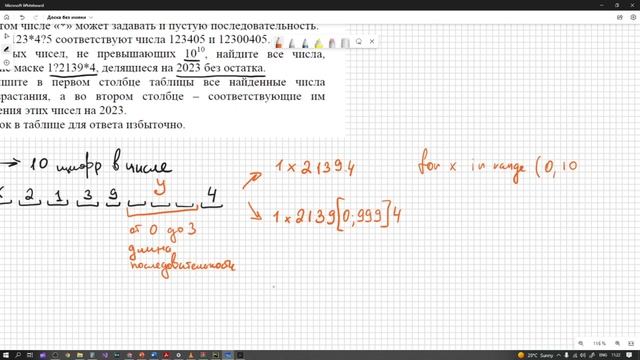 Microsoft Whiteboard
Доска без имени
том числе «*» может задавать и пустую последовательность.
123*4?5 соответствуют числа 123405 и 12300405.
ных чисел, не превышающих 10¹⁰, найдите все числа,
маске 1?2139*4, делящиеся на 2023 без остатка.
ишите в первом столбце таблицы все найденные числа
зрастания, а во втором столбце – соответствующие им
ения этих чисел на 2023.
ок в таблице для ответа избыточно.
→ 10 цифр в числе
x 2 1 3 9 y 4
от 0 до 3
длина
последовательности
1 x 2139.4
1 x 2139[0;999]4
for x in range (0, 10
116 %
29°C Sunny
ENG
11:22